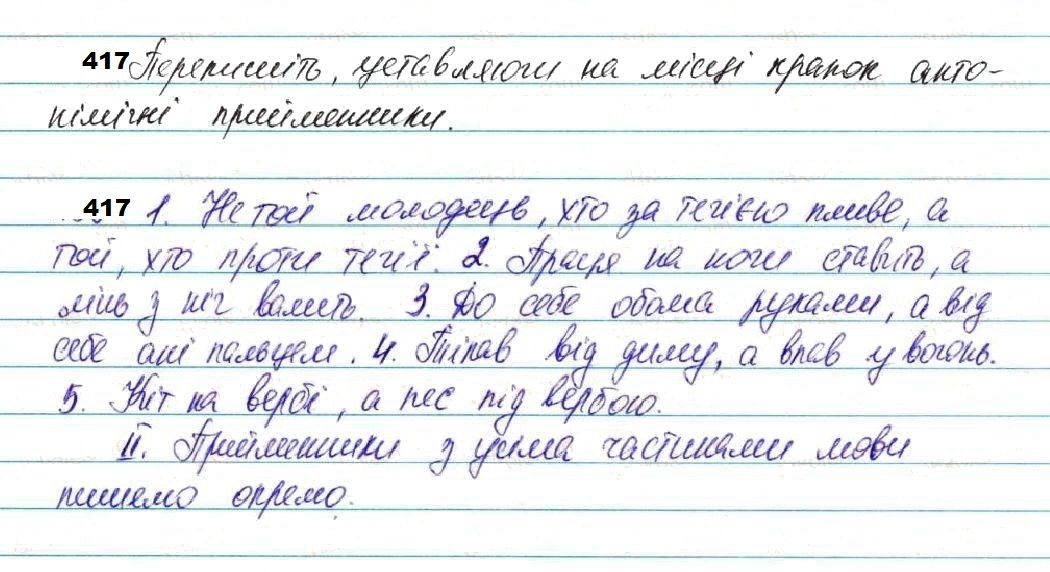 417 Перепишіть, уставляючи на місці крапок анто-
німічні прийменники.
417 1. Не той молодець, хто за течією пливе, а
той, хто проти течії. 2. Праця на ноги ставить, а
лінь з ніг валить. 3. До себе обома руками, а від
себе ані пальцем. 4. Тікав від диму, а впав у вогонь.
5. Кіт на вербі, а пес під вербою.
II. Прийменники з усіма частинами мови
пишемо окремо.